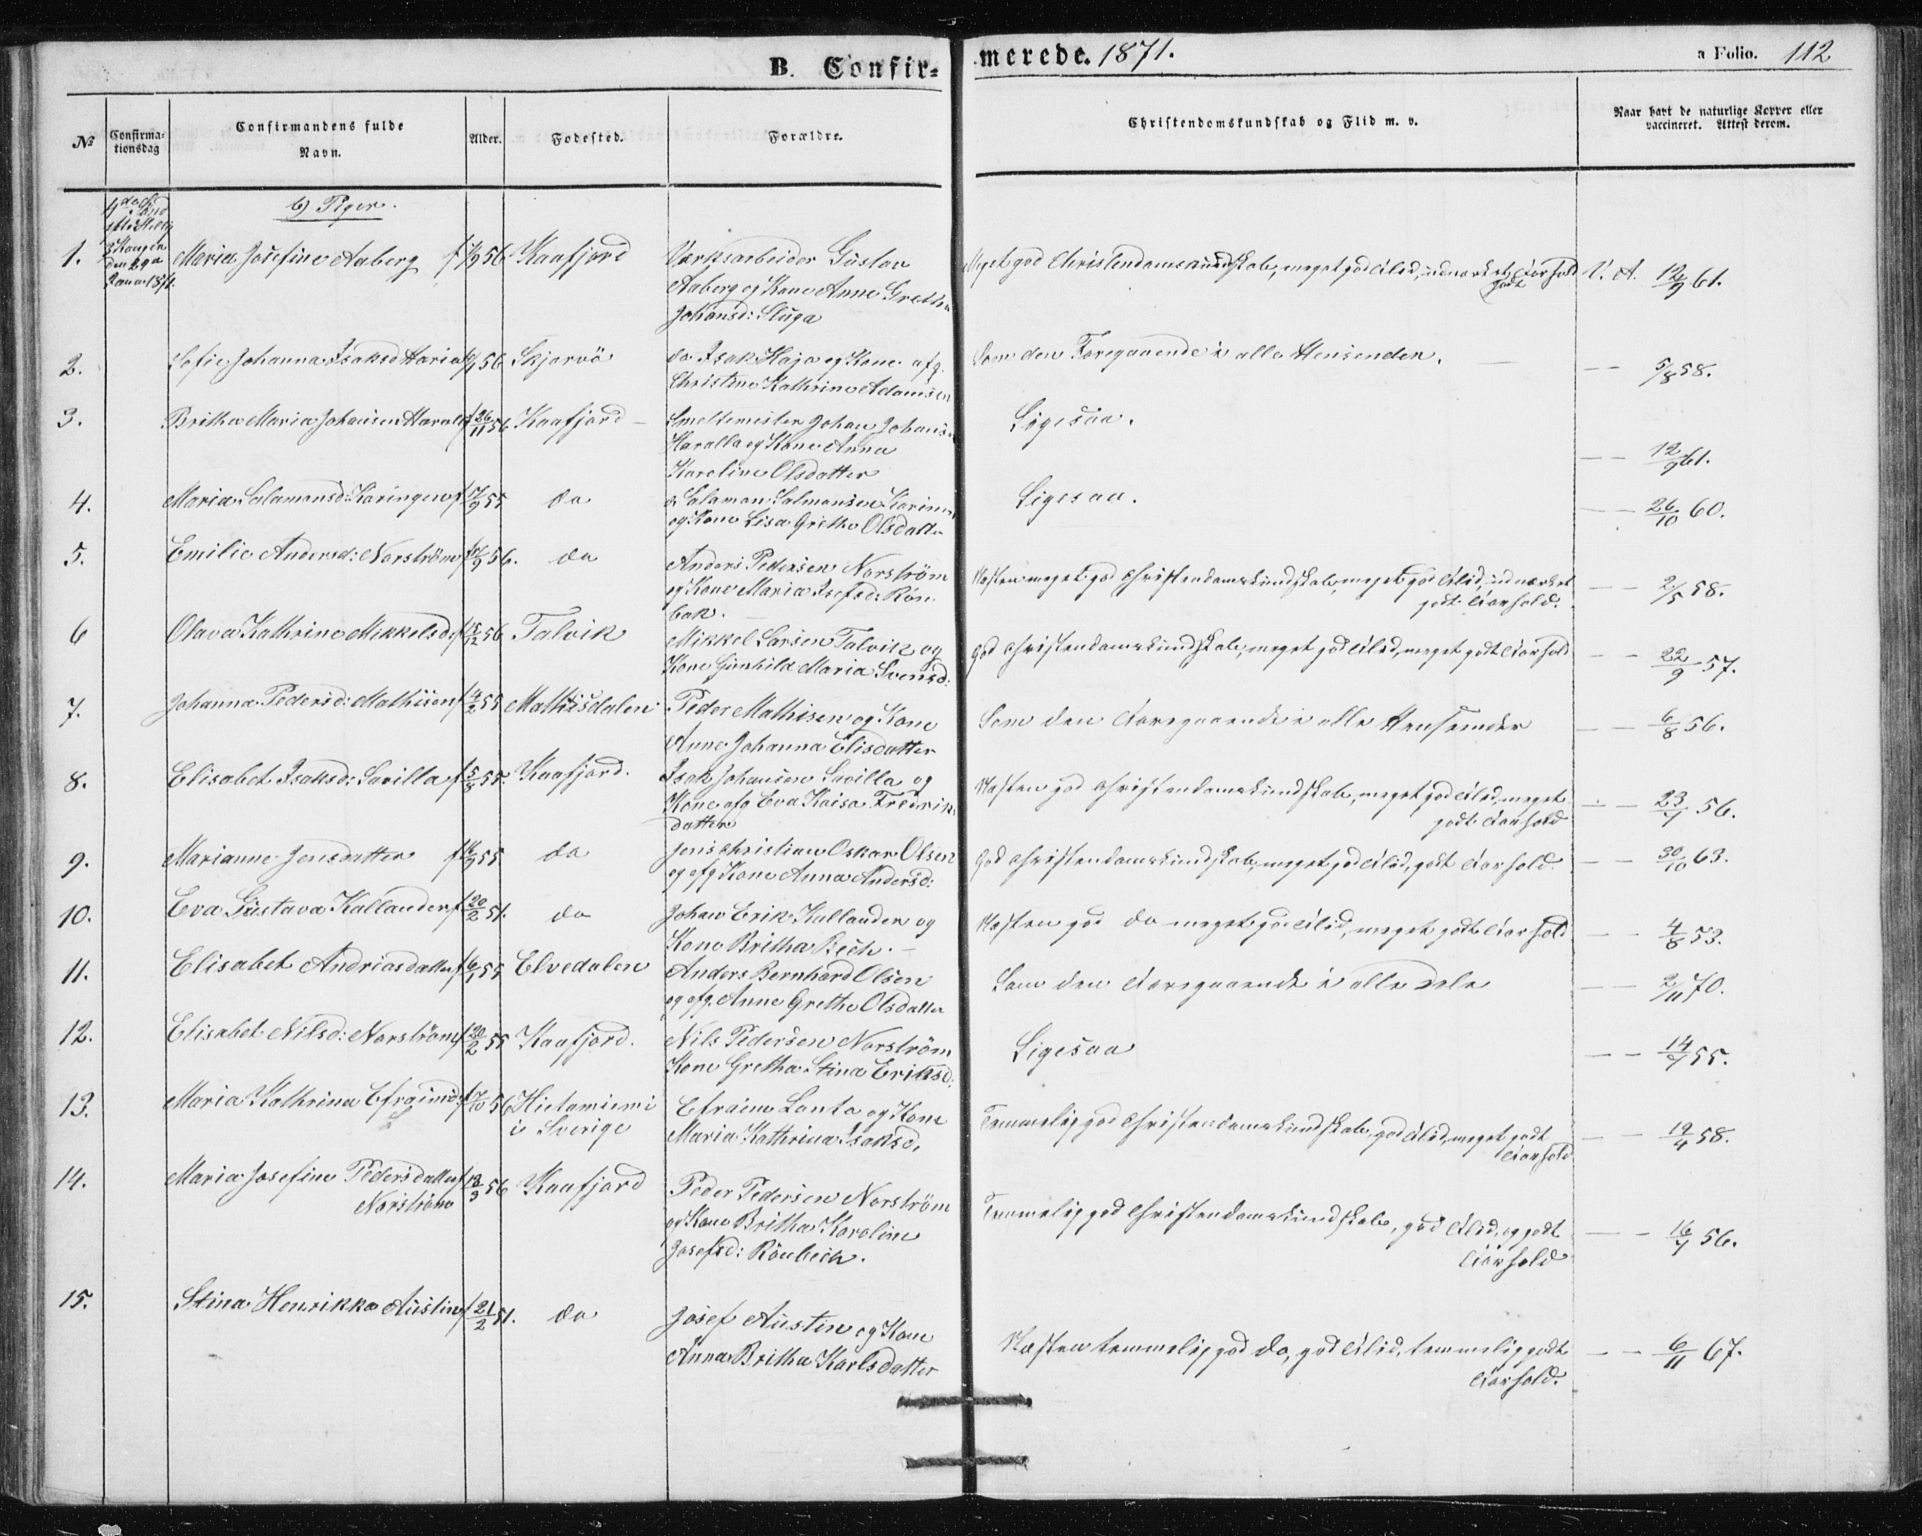 B. Confirmerede. 1871. a Folio. 112
№ Confirmationsdag Confirmandens fulde Navn. Alder. Fodested. Forældre. Christendomskundskab og Flid m. v. Naar havt de naturlige Kopper eller vaccineret. Attest derom.
b) Piger.
1. Maria Josefine Aaberg f 56 Kaafjord Værksarbeider Gustav Meget god Christendomskundskab, meget god Flid, udmærket godt Forhold V. A. 12/9 61.
Aaberg og Kone Anne Grethe
Johansd: Sluga
2. Sofie Johanna Isaksd Haria 56 Skjervö do Isak Haja og Kone afg. Som den Foregaaende i alle Henseender. 5/8 58.
Christine Kathrine Adamsen
3. Britha Maria Johansen Haralla f 26/11 56 Kaafjord Smeltemester Johan Johansen Ligesaa. 12/9 61.
Haralla og Kone Anna
Karoline Olsdatter
4. Maria Salamonsd: Karingen f 17/9 55 do do Salamon Salmonsen Ligesaa. 26/10 60.
og Kone Lisa Grethe Olsdatter
5. Emilie Andersd: Norström f 56. do Anders Pedersen Norström Næsten meget god Christendomskundskab, meget god Flid, udmærket 2/5 58.
og Kone Maria Josefsd: Rön- godt Forhold.
bak.
6 Olava Kathrine Mikkelsd: f 15/2 56 Talvik Mikkel Larsen Talvik og God Christendomskundskab, meget god Flid, meget godt Forhold 22/9 57.
Kone Gunhild Maria Svensd:
7. Johanna Pedersd: Mathisen f 4/2 55 Mathisdalen Peder Mathisen og Kone Som den Foregaaende i alle Henseender 6/8 56.
Anne Johanna Elisdatter
8. Elisabet Isaksd: Savilla f 5/8 55. Kaafjord. Isak Johansen Savilla og Næsten god Christendomskundskab, meget god Flid, meget 23/7 56.
Kone afg Eva Kaisa Fredrik- godt Forhold
datter
9. Marianne Jensdatter f 16/9 55 do Jens Christian Oskar Olsen God Christendomskundskab, meget god Flid, godt Forhold 30/10 63.
og afg Kone Anna Andersd:
10. Eva Gustava Kallander f 20/2 51. do Johan Erik Kallander og Næsten god do meget god Flid, meget godt Forhold 4/8 53.
Kone Britha Bech.
11. Elisabet Andriasdatter f 55 Elvedalen Anders Bernhard Olsen Som den Foregaaende i alle Dele 2/11 70.
og afg. Anne Grethe Olsdatter
12. Elisabet Nilsd: Norström f 20/2 55 Kaafjord. Nils Pedersen Norström Ligesaa 14/7 55.
Kone Gretha Stina Eriksd.
13. Maria Kathrina Efraimsd: f 17/10 56 Hietaniemi Efraim Lanta og Kone Temmelig god Christendomskundskab, god Flid, meget godt 19/4 58.
i Sverige Maria Kathrina Isaksd. Forhold
14. Maria Josefine Pedersdatter f 18/3 56 Kaafjord Peder Pedersen Norström Temmelig god Christendomskundskab, god Flid, og godt 16/7 56.
Norström og Kone Britha Karoline Forhold
Josefsd: Rönbech.
15. Stina Henrikka Austin f 21/2 51. do Josef Austin og Kone Næsten temmelig god do, god Flid, temmelig godt 6/11 67.
Anna Britha Karlsdatter Forhold.